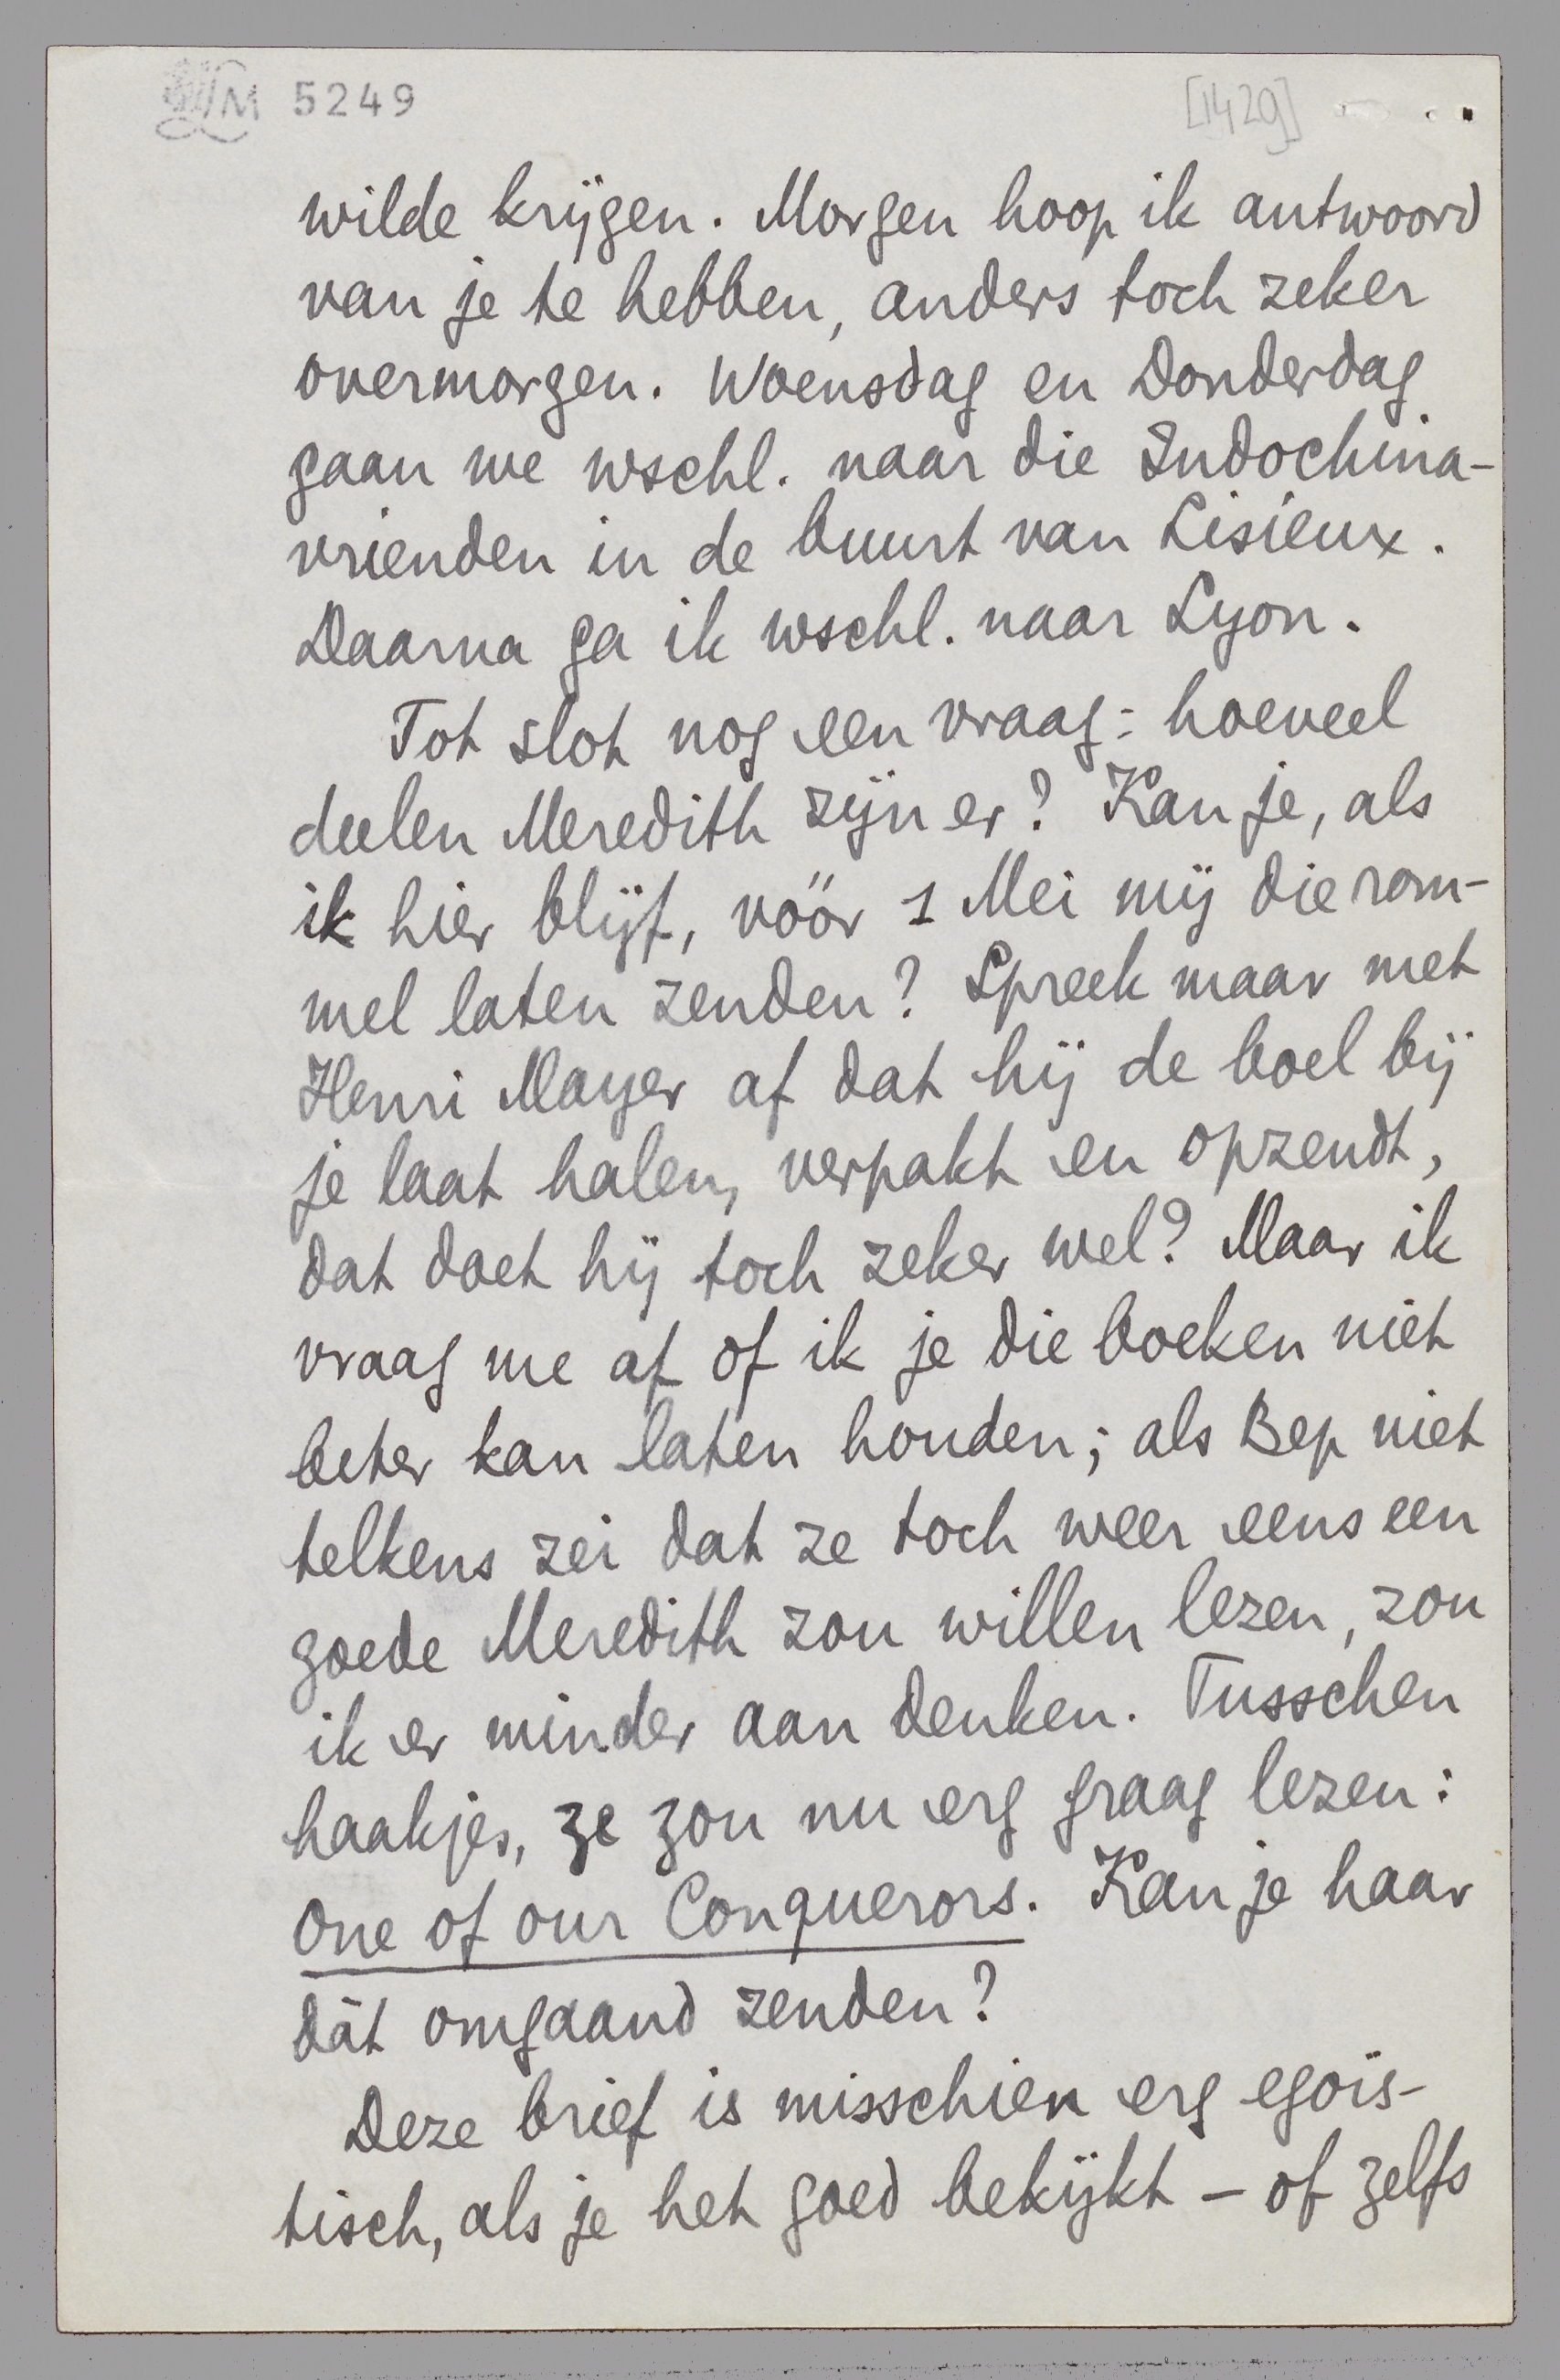 LM 5249 [1429]
wilde krijgen. Morgen hoop ik antwoord
van je te hebben, anders toch zeker
overmorgen. Woensdag en Donderdag
gaan we wschl. naar die Indochina-
vrienden in de buurt van Lisieux.
Daarna ga ik wschl. naar Lyon.
Tot slot nog een vraag: hoeveel
deelen Meredith zijn er? Kan je, als
ik hier blijf, vóór 1 Mei mij die rom-
mel laten zenden? Spreek maar met
Henri Mayer af dat hij de boel bij
je laat halen, verpakt en opzendt,
dat doet hij toch zeker wel? Maar ik
vraag me af of ik je die boeken niet
beter kan laten houden; als Bep niet
telkens zei dat ze toch weer eens een
goede Meredith zou willen lezen, zou
ik er minder aan denken. Tusschen
haakjes, ze zou nu erg graag lezen:
One of our Conquerors. Kan je haar
dàt omgaand zenden?
Deze brief is misschien erg egoïs-
tisch, als je het goed bekijkt – of zelfs